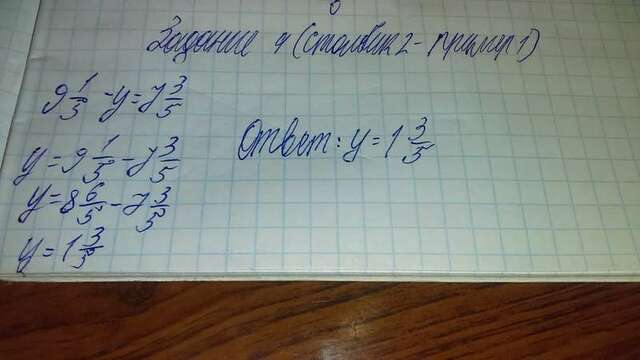 Задание 4 (столбик 2 - пример 1)
9 1/5 - y = 7 3/5
y = 9 1/5 - 7 3/5
y = 8 6/5 - 7 3/5
y = 1 3/5
Ответ: y = 1 3/5